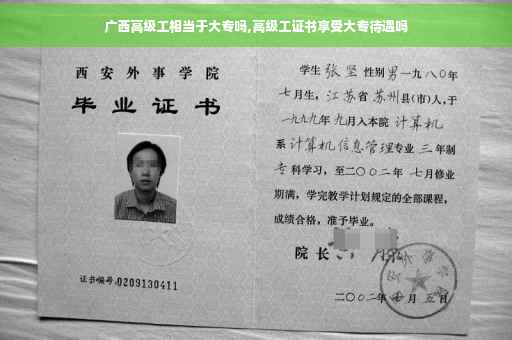 广西高级工相当于大专吗,高级工证书享受大专待遇吗
西安外事学院
毕业证书
证书编号:0209130411
学生 张坚 性别 男 一九八〇年
七月生, 江苏省 苏州县(市)人,于
一九九九年 九月入本院 计算机
系 计算机信息管理 专业 三 年制
专科学习,至二〇〇二年 七月修业
期满,学完教学计划规定的全部课程,
成绩合格,准予毕业。
院长
二〇〇二年 七月 五日